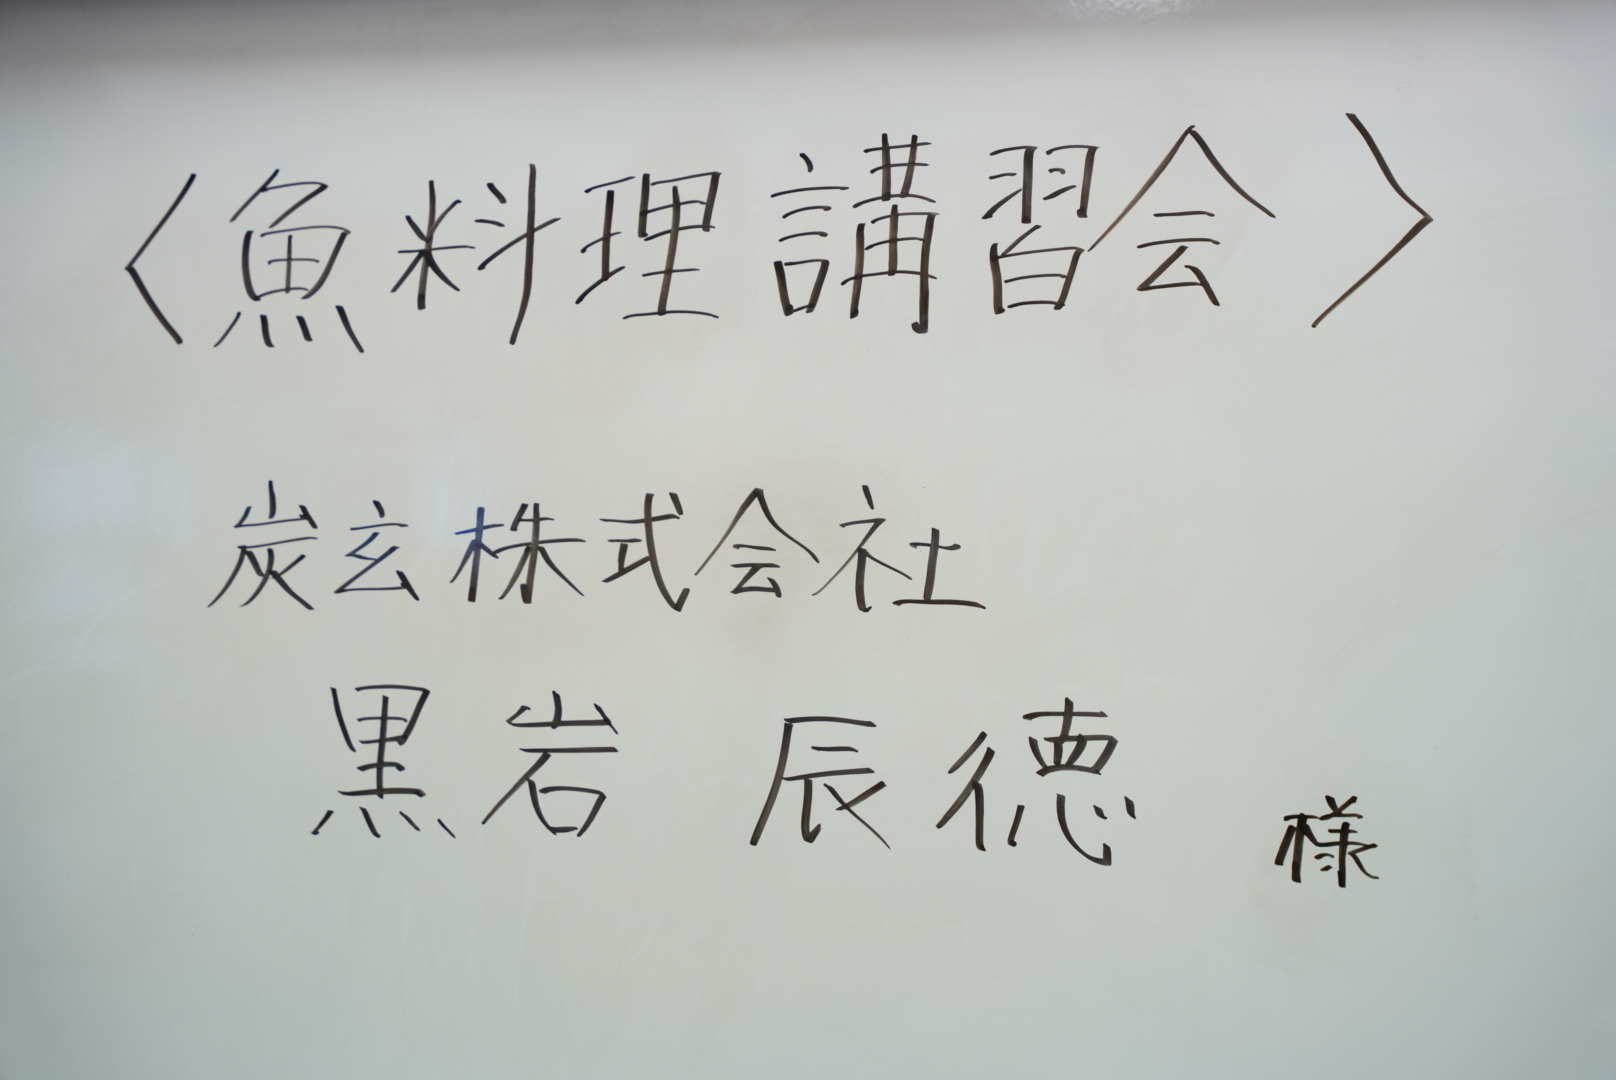 〈魚料理講習会〉
炭玄株式会社
黒岩 辰徳 様